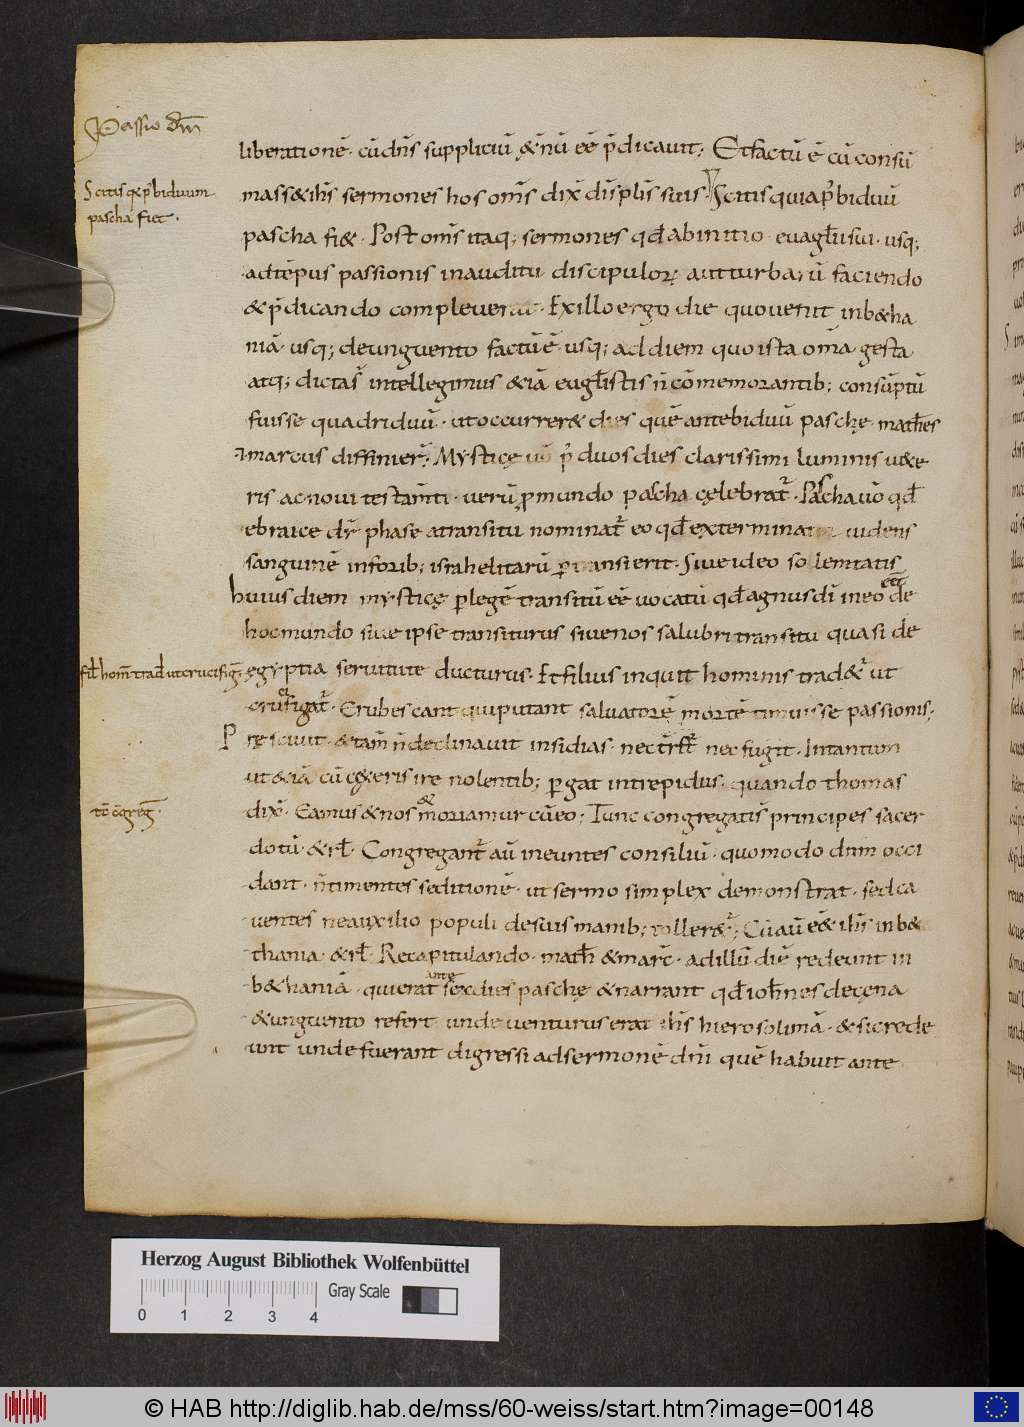 Passio dn̄i
liberationē · cū dn̄s suppliciū & n̄ ūi eē p̄dicauit; Et factū ē cū consū
Scitis q̇ p̄ biduum
mass& ih̄s sermones hos om̄s dix̄ discīplīs suis · Scitis quia p̄ biduū
pascha fiet ·
pascha fi& · Post om̄s itaq; sermones qđ ab initio euaḡlii sui · usq;
ad tēpus passionis in auditu discipuloꝝ aut turbarū faciendo
& p̄dicando compleuerat · Ex illo ergo die quo uenit in b&ha
niā usq; de unguento factū ē usq; ad diem quo ista om̄a gesta
atq; dictaſ intellegimus &iā eugl̄istis n̄ cōmemorantib; consūptū
fuisse quadriduū · ut occurrer& dies quē ante biduū paschę math̄es
⁊ marcus diffinier̄; Mysticę uō p̄ duos dies clarissimi luminis u&e
ris ac noui testam̄ti · uerū ꝓ mundo pascha cęlebrat̄ · Pascha uō qđ
ebraice dr̄ phase a transitu nominat̄ eo qđ exterminator uidens
sanguinē in forib; israhelitarū ꝑtransierit · Siue ideo sollemitatis
huius diem mysticę ꝑ legē transitū eē uocatū qđ agnus dī in eo de
hoc mundo siue ipse transiturus siue nos salubri transitu quasi de
fil̄ hom̄ trad̄ ut crucifiḡ ·
ęgyptia seruitute ducturus · Et filius inquit hominis trad&̄ ut
crucifigat̄ · Erubescant qui putant saluatorē mortē timuisse passionis;
Pręsciuit · & tam̄ n̄ declinauit insidias · nec t̄r̄ nec fugit · Intantum
ut &iā cū c&eris ire nolentib; ꝑgat intrepidus · quando thomas
tc̄ cōgreḡ ·
dix̄ · Eamus & nos & moriamur cū eo; Tunc congregatis principes sacer
dotū · & rł · Congregant̄ aū ineuntes consiliū · quomodo dn̄m occi
dant · n̄ timentes seditionē · ut sermo simplex demonstrat · sed ca
uentes ne auxilio populi de suis manib; toller&̄; Cū aū e&̄ ih̄s in b&
thania · & rł · Recapitulando · math̄ & marc̄ · ad illū diē redeunt in
b&haniā · qui erat ante sex dies paschę & narrant qđ ioh̄nes de cęna
& unguento refert unde uenturus erat ih̄s hierosolimā · & sic rede
unt unde fuerant digressi ad sermonē dn̄i quē habuit ante
Herzog August Bibliothek Wolfenbüttel
Gray Scale
0 1 2 3 4
© HAB http://diglib.hab.de/mss/60-weiss/start.htm?image=00148